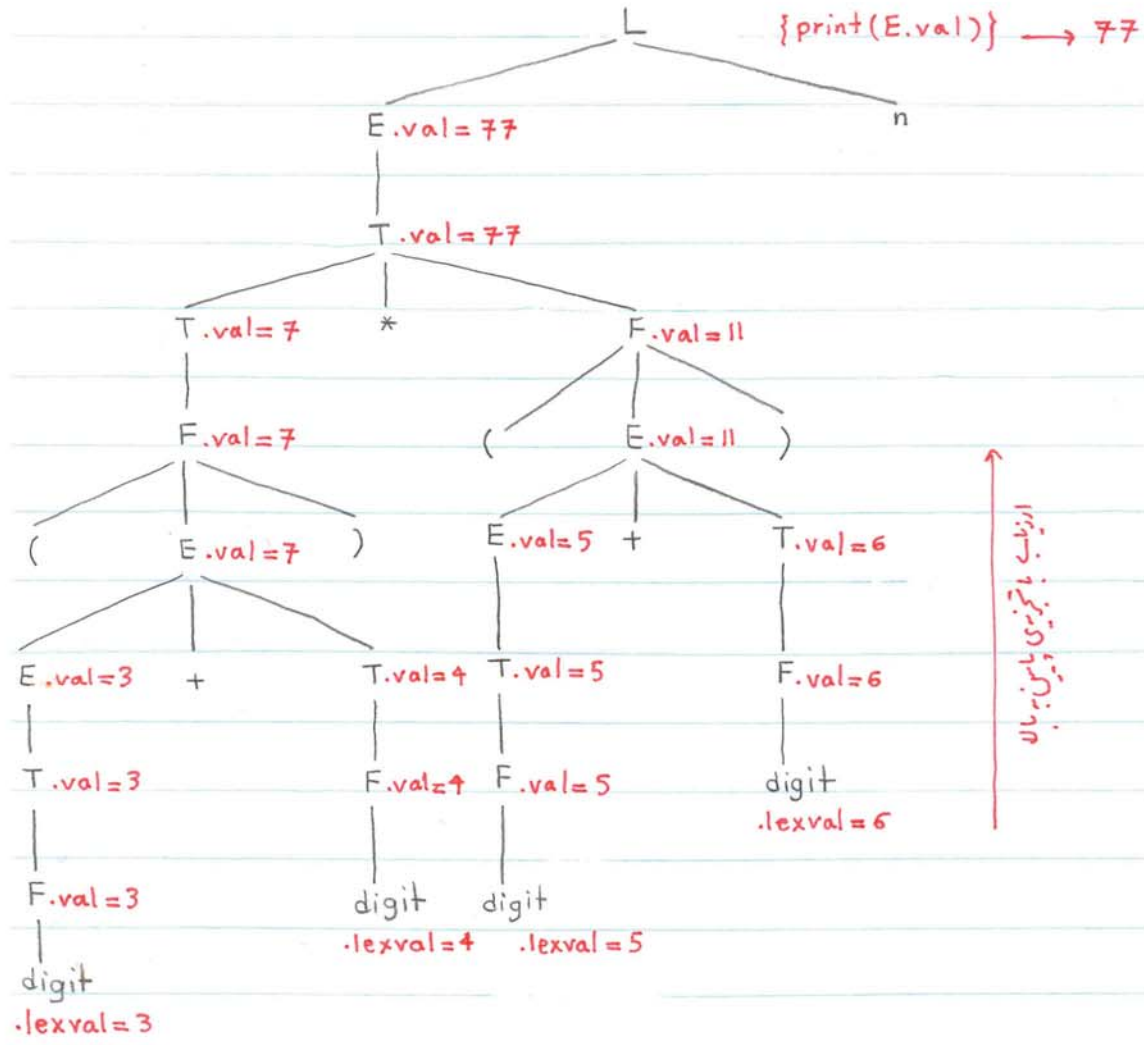 L {print(E.val)} → 77
E.val=77 n
T.val=77
T.val=7 * F.val=11
F.val=7 ( E.val=11 )
( E.val=7 ) E.val=5 + T.val=6
E.val=3 + T.val=4 T.val=5 F.val=6
T.val=3 F.val=4 F.val=5 digit
.lexval=6
F.val=3 digit digit
.lexval=4 .lexval=5
digit
.lexval=3
پایین به بالا